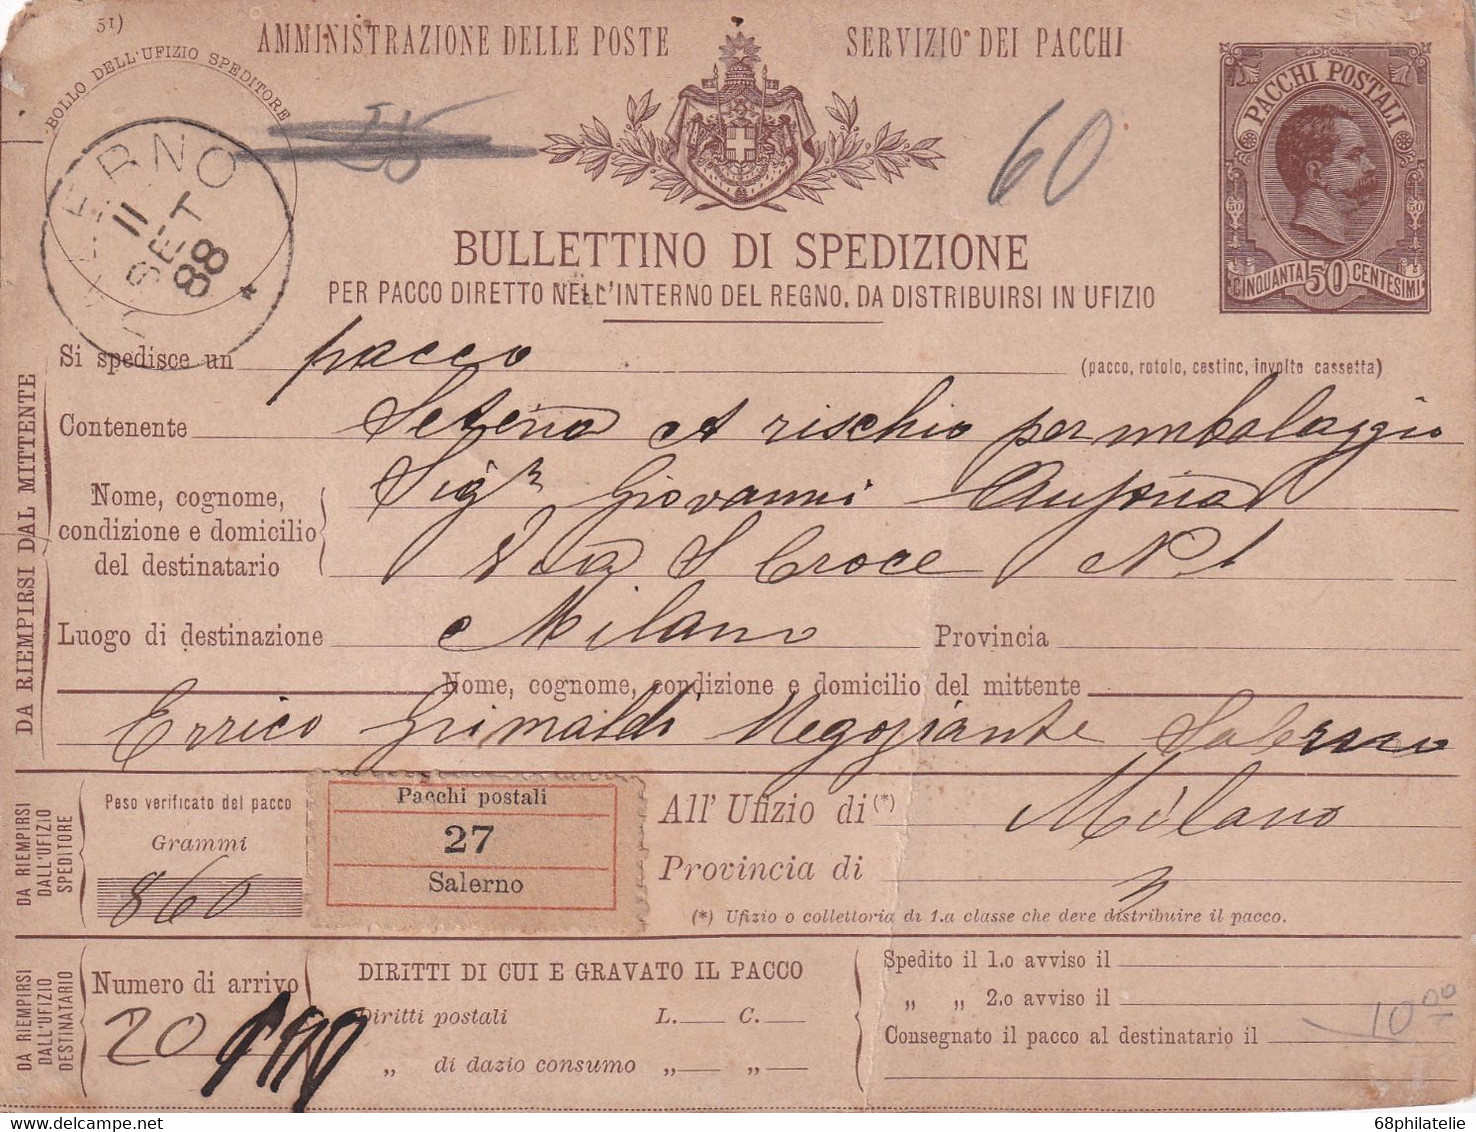 51)
AMMINISTRAZIONE DELLE POSTE SERVIZIO DEI PACCHI
BOLLO DELL'UFIZIO SPEDITORE
SALERNO
11
SET
88
25
60
PACCHI POSTALI
50 50
CINQUANTA 50 CENTESIMI
BULLETTINO DI SPEDIZIONE
PER PACCO DIRETTO NELL'INTERNO DEL REGNO, DA DISTRIBUIRSI IN UFIZIO
DA RIEMPIRSI DAL MITTENTE
Si spedisce un pacco (pacco, rotolo, cestino, involto cassetta)
Contenente A rischio per imbalaggio
Nome, cognome, condizione e domicilio del destinatario
Sigr Giovanni
Via S Croce N 1
Luogo di destinazione Milano Provincia
Nome, cognome, condizione e domicilio del mittente
Errico Grimaldi Negoziante Salerno
DA RIEMPIRSI DALL'UFIZIO SPEDITORE
Peso verificato del pacco
Grammi
860
Pacchi postali
27
Salerno
All' Ufizio di (*) Milano
Provincia di
(*) Ufizio o collettoria di 1.a classe che deve distribuire il pacco.
DA RIEMPIRSI DALL'UFIZIO DESTINATARIO
Numero di arrivo
20
DIRITTI DI CUI E GRAVATO IL PACCO
Diritti postali L. C.
„ di dazio consumo „ „
Spedito il 1.o avviso il
„ „ 2.o avviso il
Consegnato il pacco al destinatario il
10 00
68philatelie